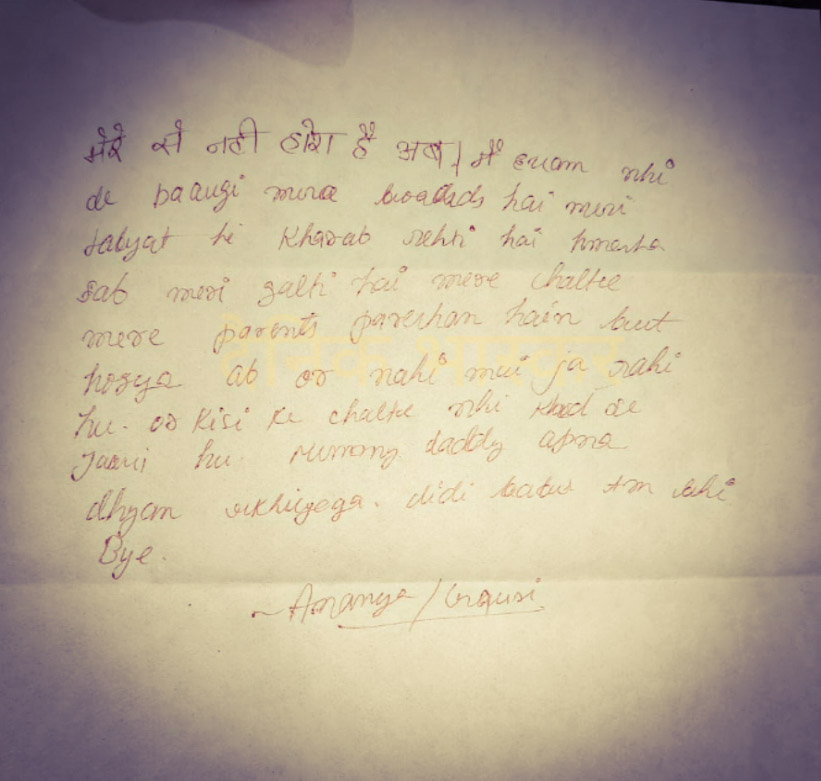 मेरे से नही होरा है अब। मैं exam nhi
de paaugi mera boards hai meri
tabyat hi kharab rehti hai hmesha
sab meri galti hai mere chalte
mere parents pareshan hain but
hogya ab or nahi mai ja rahi
hu. or kisi ke chalte nhi khud se
jaari hu. mummy daddy apna
dhyan rkhiyega. didi babu bhi
Bye.
~ Ananya /
दैनिक भास्कर